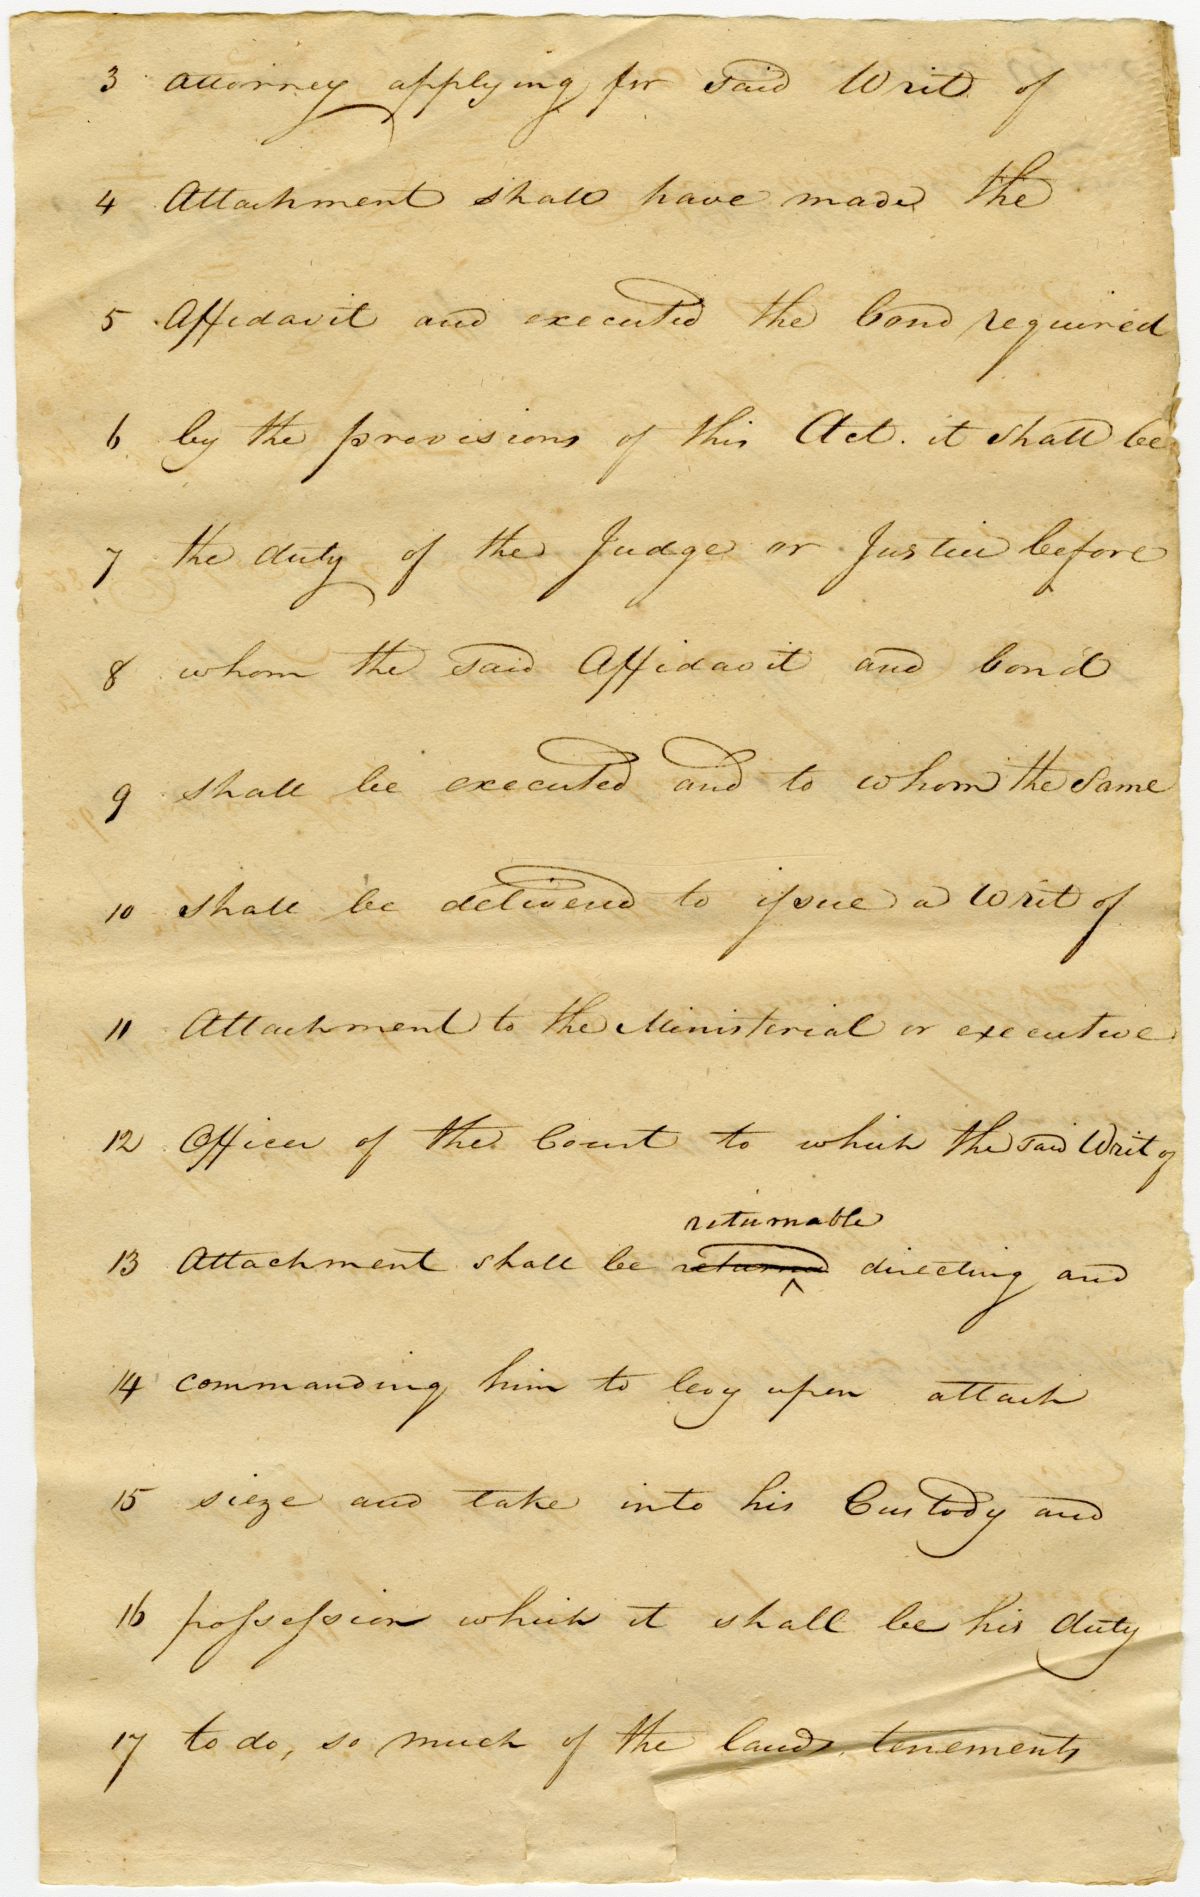 3 attorney applying for said Writ of
4 Attachment shall have made the
5 Affidavit and executed the bond required
6 by the provisions of this Act. it shall be
7 the duty of the Judge or Justice before
8 whom the said Affidavit and bond
9 shall be executed and to whom the same
10 shall be delivered to issue a Writ of
11 Attachment to the Ministerial or executive
12 Officer of the Court to which the said Writ of
returnable
13 Attachment shall be returned directing and
14 commanding him to levy upon attach
15 sieze and take into his Custody and
16 possession which it shall be his duty
17 to do, so much of the lands, tenements